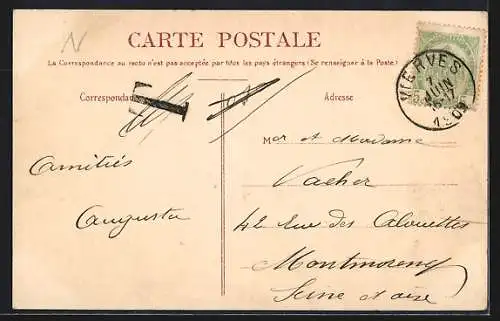 N
CARTE POSTALE
La Correspondance au recto n'est pas acceptée par tous les pays étrangers (Se renseigner à la Poste.)
Correspondance
T
Adresse
VIERVES
7
JUIN
190
Mer et Madame
Vacher
42 Rue des Alouettes
Montmorency
Seine et oise
Amitiés
Augusta